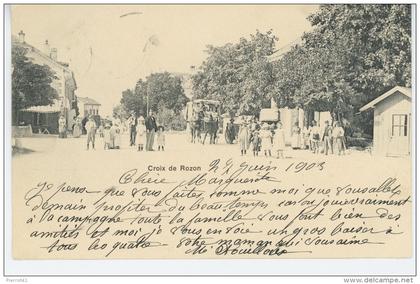 Croix de Rozon 24 juin 1903
Chère Marguerite
Je pense que vous êtes comme moi que vous allez
demain profiter du beau temps car on
a la campagne toute la famille vous font bien des
amitiés et moi je vous envoie un gros baiser à
tous les quatre votre maman qui vous aime
Pierre50
delcampe.net